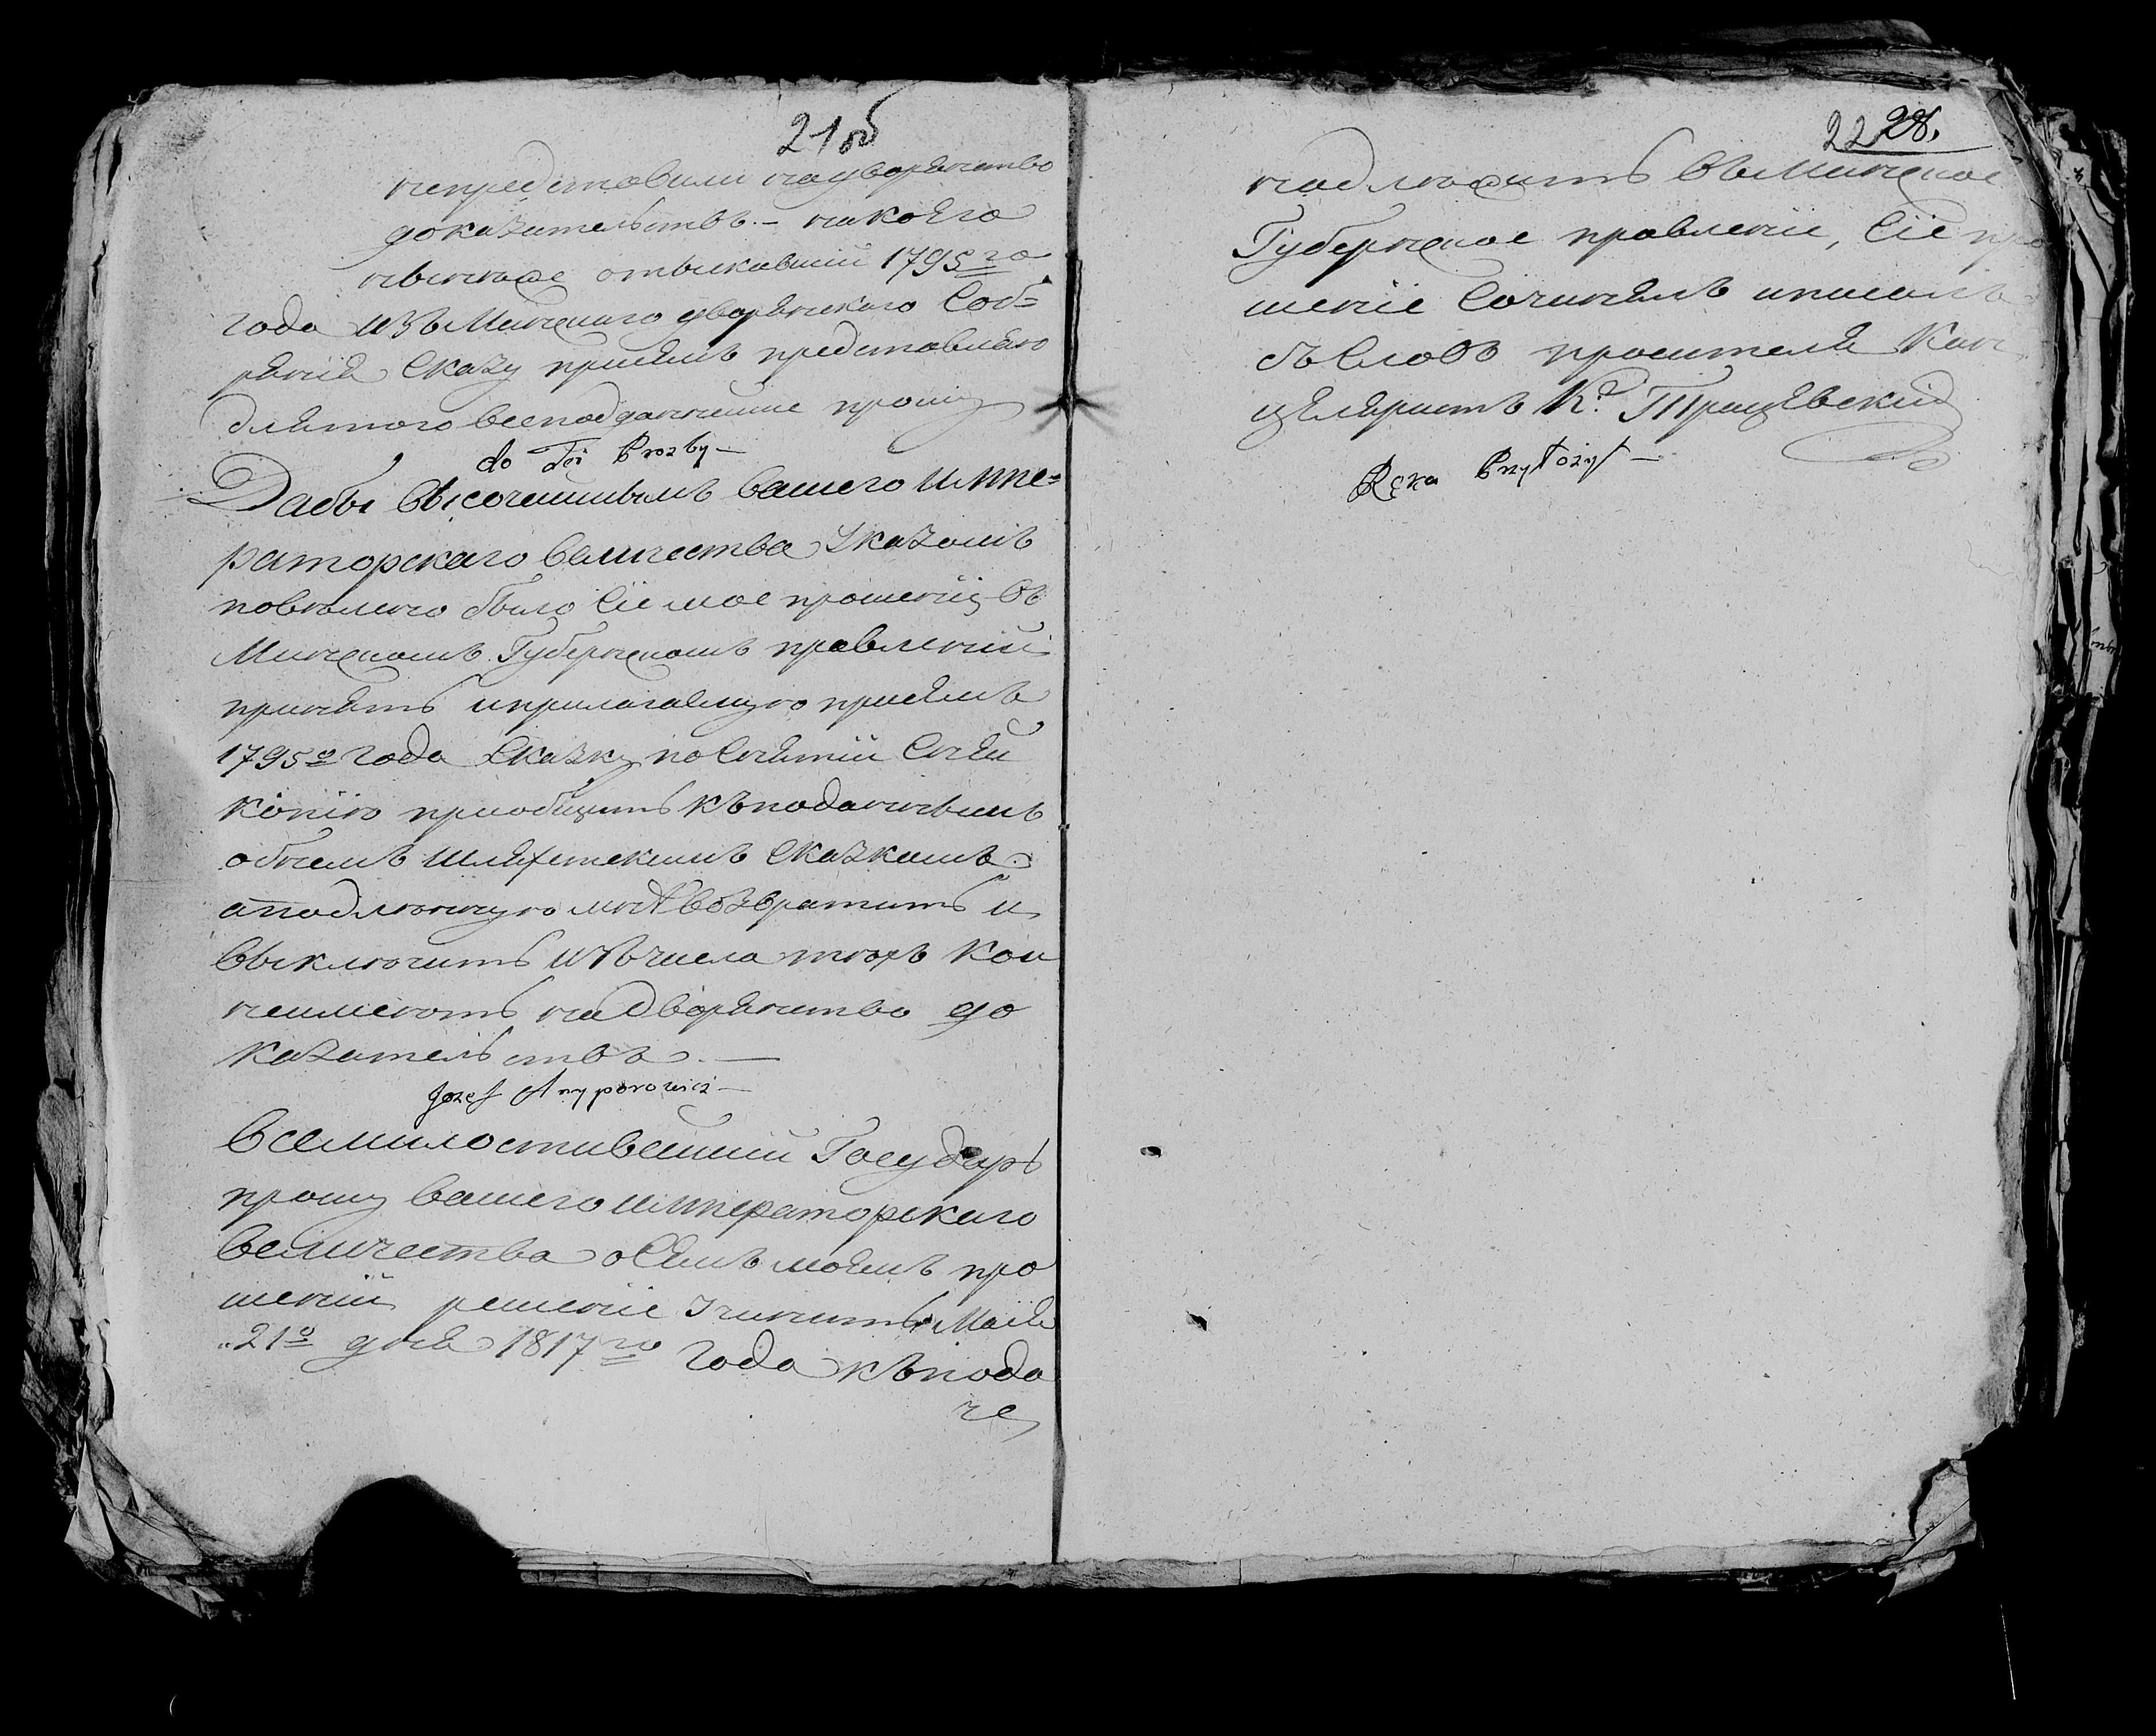 21об
непредставили надворянство
доказательствъ. — накоего
нынѣ отыскавши 1795го
года изъ Минскаго дворянскаго Соб=
рания Сказу присемъ представляю
длятого всеподданнейше прошу
do Tei Prozby —
Дабы высочайшимъ вашего импе=
раторскаго величества Указомъ
повелено было Сие мое прошении въ
Минскомъ Губернскомъ правлении
принять иприлагаемую присемъ
1795го года Сказку поСнятии Сней
копию приобщить кподаннымъ
обнемъ шляхетскимъ Сказкамъ
аподлинную мнѣ возвратить и
выключить изъ числа техъ Кои
неимеютъ надворянство до
казательствъ. —
Jozef Anyporowicz —
Всемилостивейший Государь
прошу вашего императорскаго
величества оСемъ моемъ про
шении решение Учинить Маия
„21го дня 1817го года кпода
че
22 28.
надлежитъ въ Минское
Губернское правление, Сие про
шение Сочинялъ иписалъ
съСловъ просителя Кан
целяристъ К: Трацевский
Ręka Przyłożył —